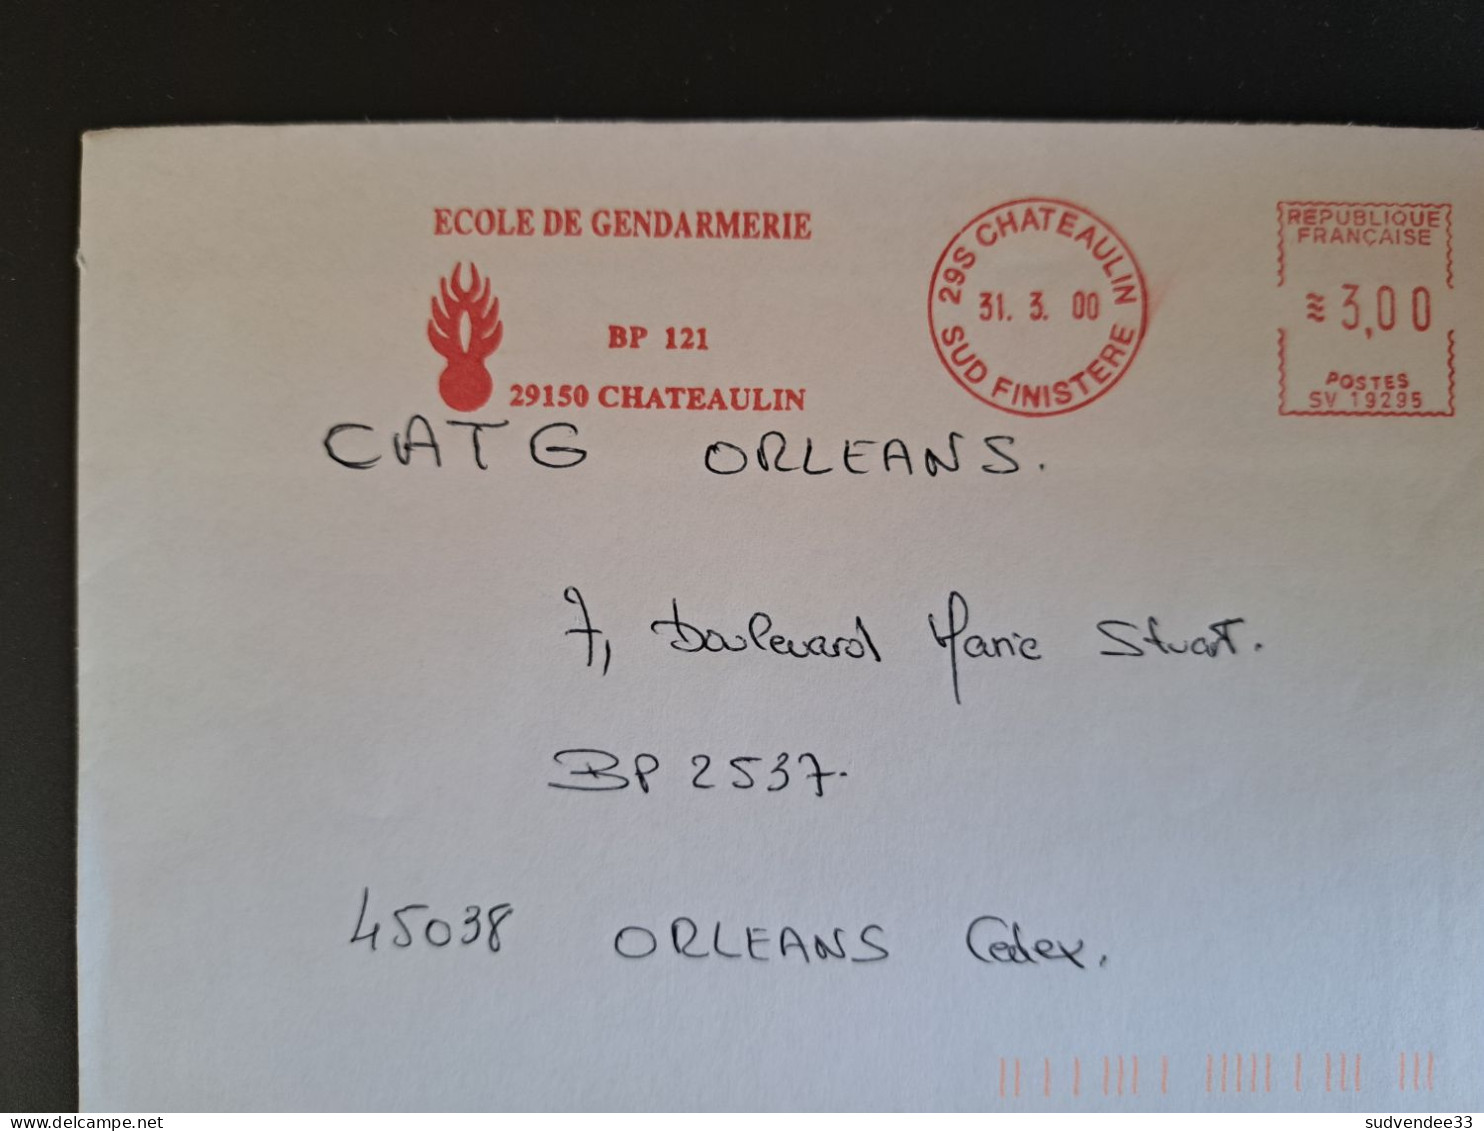 ECOLE DE GENDARMERIE
BP 121
29150 CHATEAULIN
29S CHATEAULIN
31. 3. 00
SUD FINISTERE
REPUBLIQUE
FRANÇAISE
≋ 3,00
POSTES
SV 19295
CATG ORLEANS.
7, Boulevard Marie Stuart.
BP 2537.
45038 ORLEANS Cedex.
sudvendee33